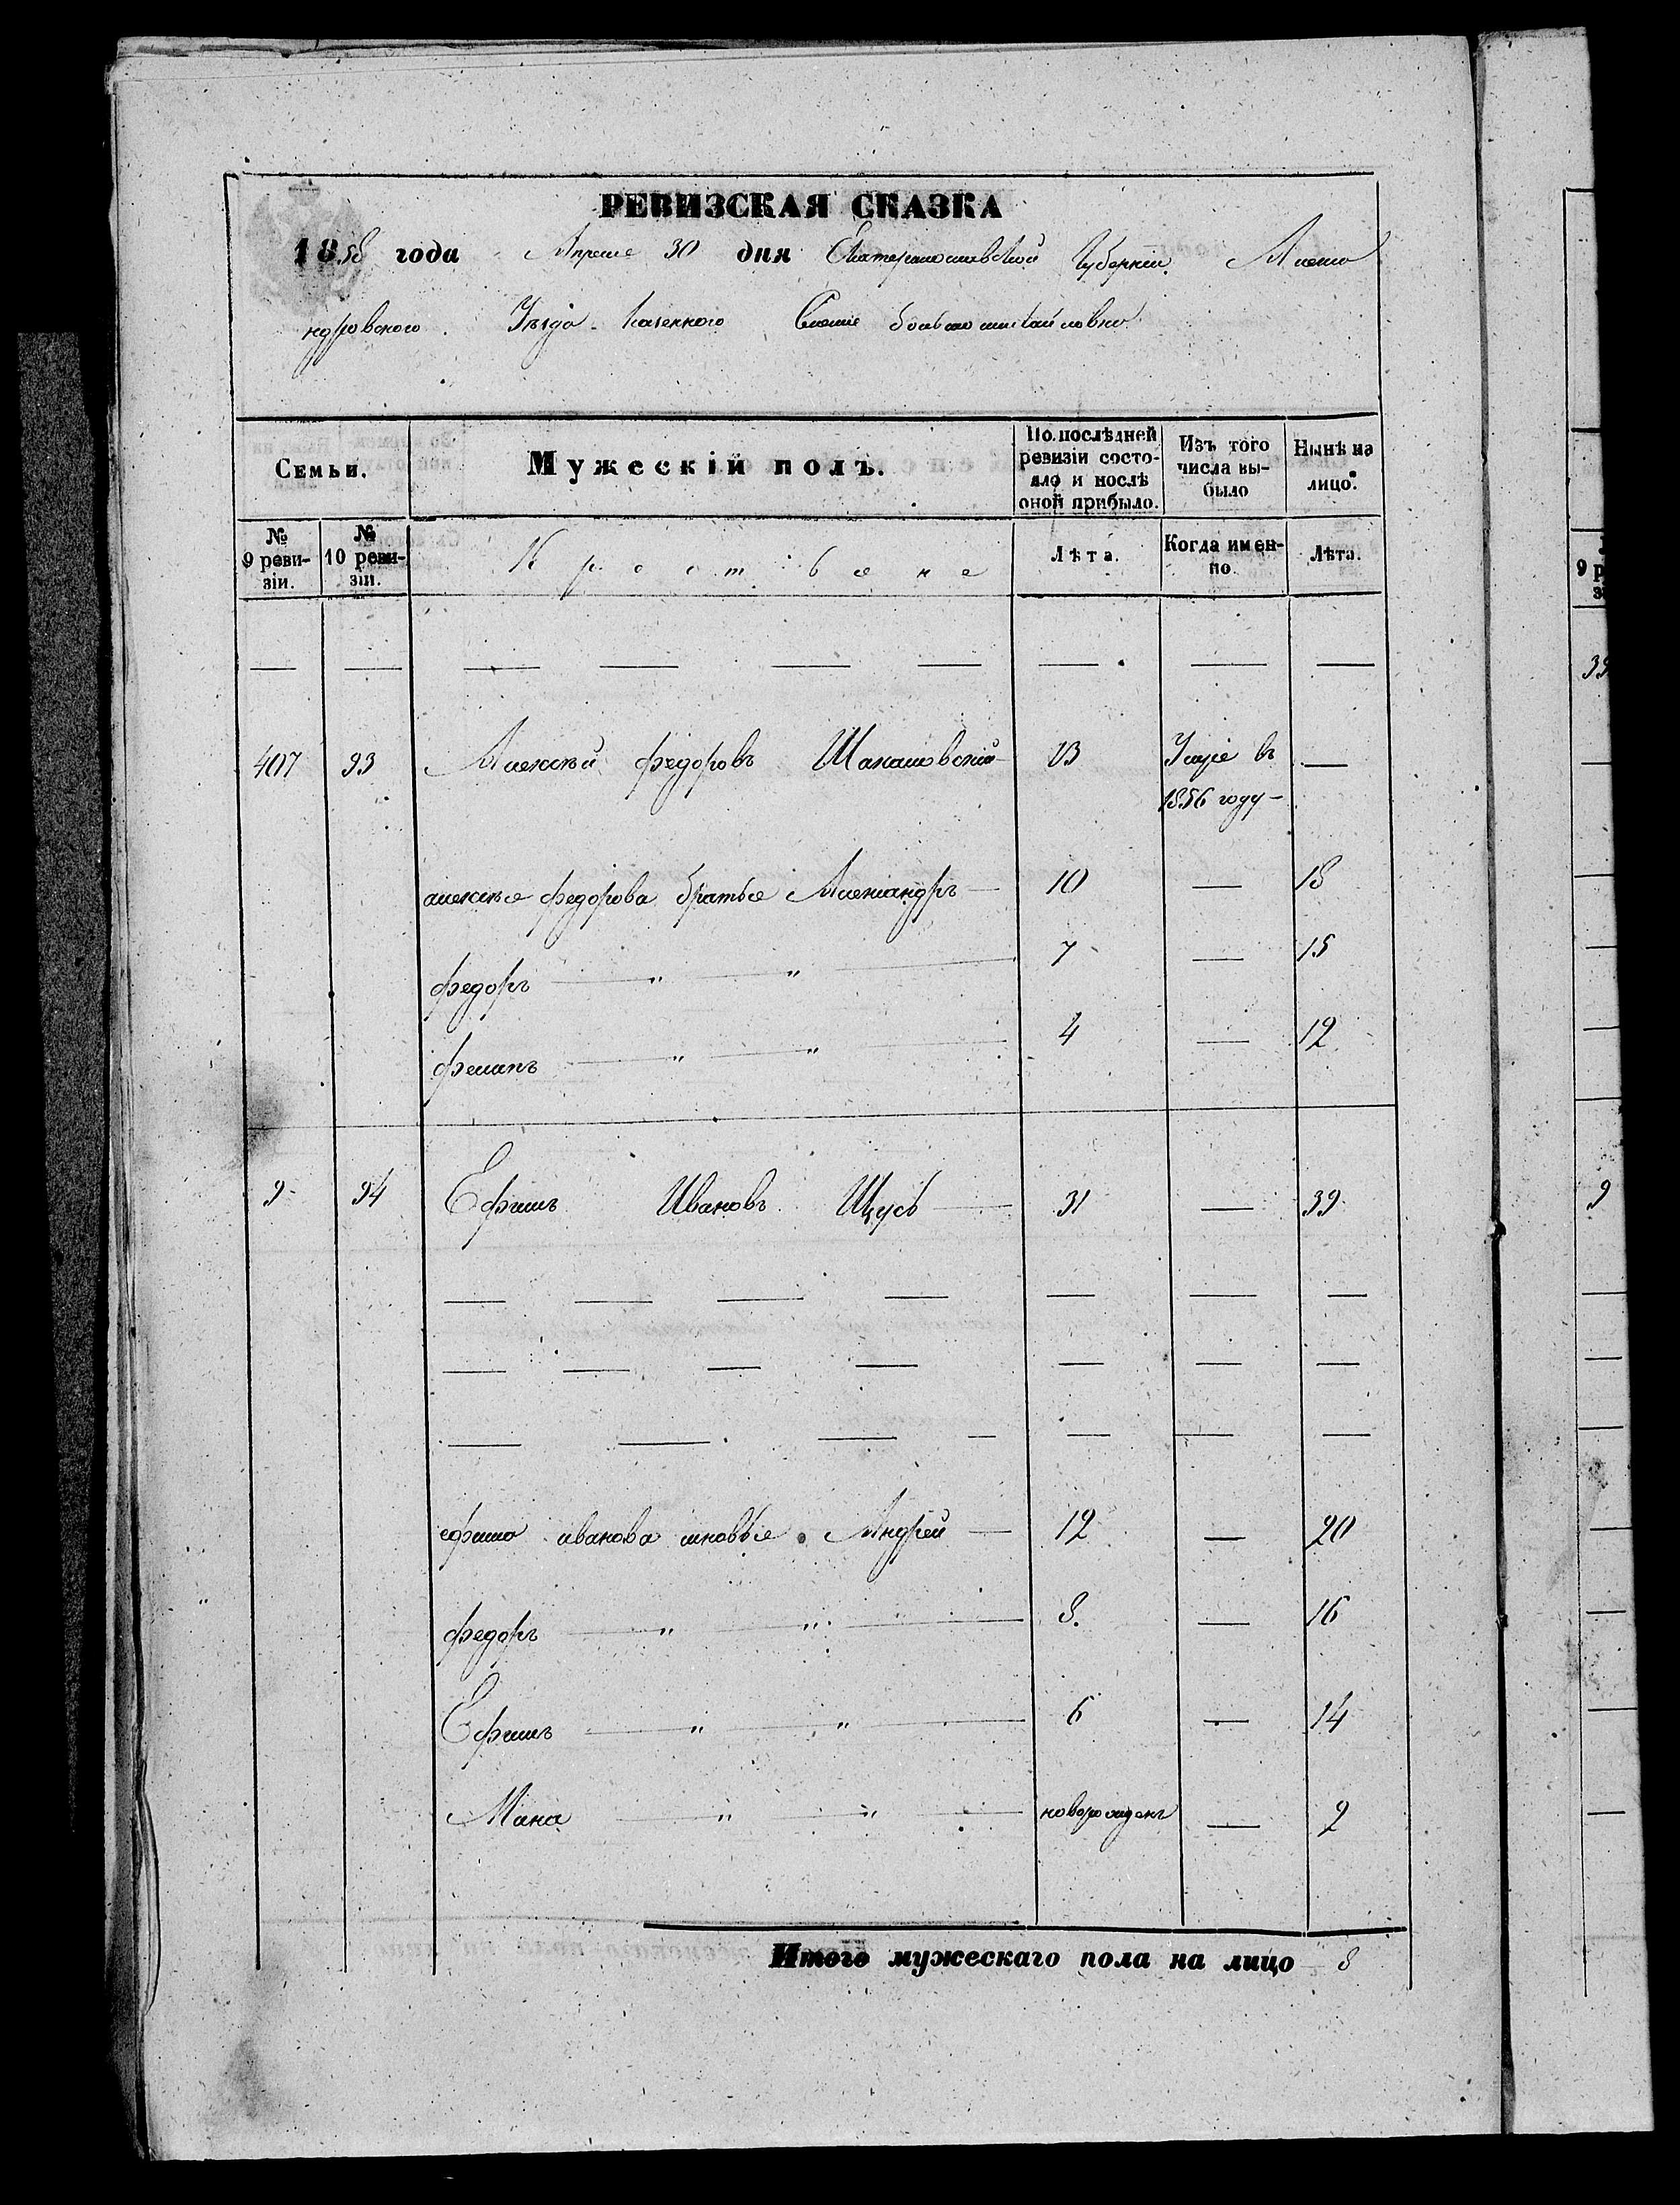 РЕВИЗСКАЯ СКАЗКА
1858 года Апреле 30 дня Екатеринославской Губернии Алекса
ндровского Уезда Казенного Селение
Семьи. Мужескій полъ. По послѣдней ревизіи состояло и послѣ оной прибыло. Изъ того числа выбыло Нынѣ на лицо.
№ 9 ревизіи. № 10 ревизіи. Крестьяне Лѣта. Когда именно. Лѣта.
407 93 Алексей федоровъ 23 Умре въ —
1856 году —
алексея федорова братья Александръ — 10 — 18
федоръ — " — " — 7 — 15
филипъ — " — " — 4 — 12
9 94 Ефимъ Ивановъ Щусь — 31 — 39
ефима иванова сыновья Андрей — 12 — 20
федоръ — " — " — 8. — 16
Ефимъ — " — " — 6 — 14
— " — " — новорожденъ — 2
Итого мужескаго пола на лицо 8
9